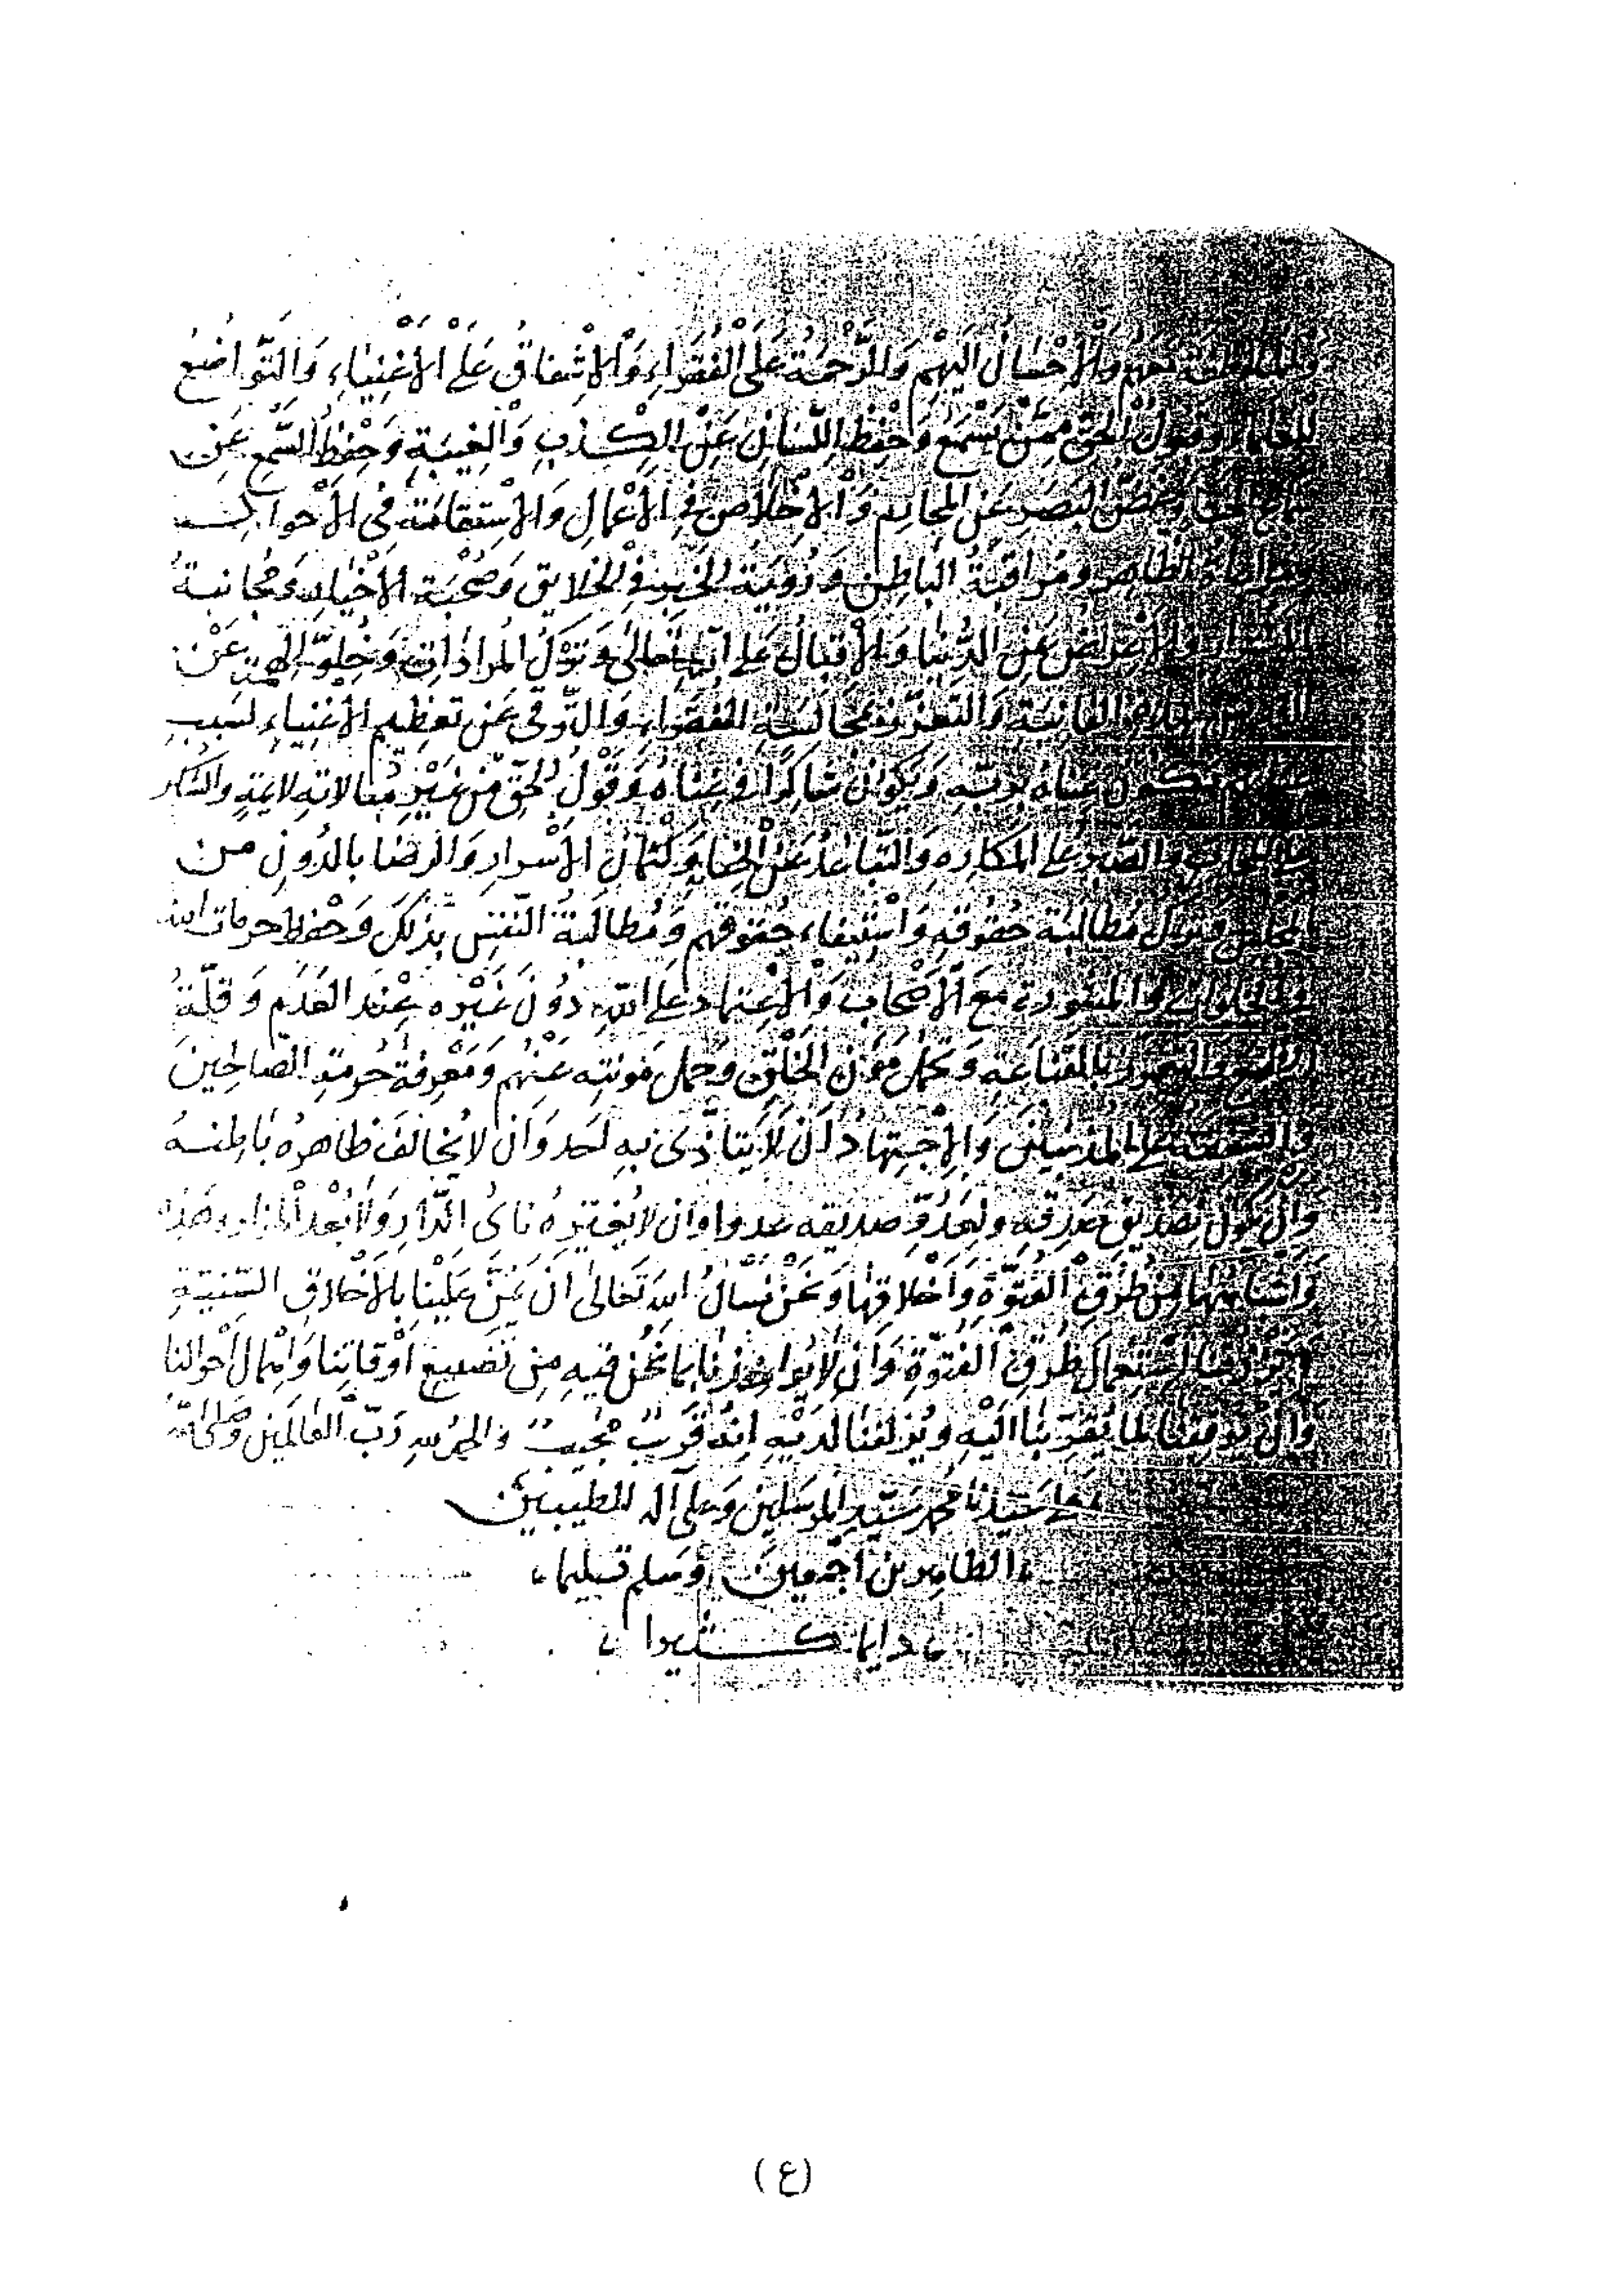 والملاطفة معهم وَالْإِحْسَانُ اِلَيْهِمْ وَالرَّحْمَةُ عَلَى الْفُقَرَاءِ وَالْإِشْفَاقُ عَلَى الْأَغْنِيَاءِ وَالتَّوَاضُعُ
وقبول الحَقِّ مِمَّنْ يَسْمَع وَحِفْظُ اللِّسَانِ عَنِ الْكِذْبِ وَالْغِيبَةِ وَحِفْظُ السَّمْعِ عَنِ
وَغَضُّ الْبَصَرِ عَنِ الْمَحَارِمِ وَالْإِخْلَاصُ فِي الْأَعْمَالِ وَالْاِسْتِقَامَةُ فِي الْأَحْوَالِ
الظاهر وَمُرَاقَبَةُ الْبَاطِنِ وَرُؤْيَةُ الْخَيْرِ فِي الْخَلَايِقِ وَصُحْبَةُ الْأَخْيَارِ وَمُجَانَبَةُ
الاشرار والاعراض عَنِ الدُّنْيَا وَالْإِقْبَالُ عَلَى اللهِ تَعَالَى وَتَرْكُ الْمُرَادَاتِ وَخُلُوُّ الْهِمَّةِ عَنْ
الفانية وَالتَّعَزُّزُ بِمُجَالَسَةِ الْفُقَرَاءِ وَالتَّوَقِّي عَنْ تَعْظِيمِ الْأَغْنِيَاءِ لِسَبَبِ
يكون غِنَاهُ بِرَبِّهِ وَيَكُونُ شَاكِرًا فِي غِنَاهُ وَقَوْلُ الْحَقِّ مِنْ غَيْرِ مُبَالَاتِهِ لَائِمَةٍ وَالشكر
والصبر على المكاره وَالتَّبَاعُدُ عَنِ الْخِيَانَةِ وَكِتْمَانُ الْأَسْرَارِ وَالرِّضَا بِالدُّونِ مِنَ
المجلس وترك مُطَالَبَة حُقُوقِهِ وَاسْتِيفَاء حُقُوقِهِمْ وَمُطَالَبَةُ النَّفْسِ بِذَلِكَ وَحِفْظُ حرمات الله
في الخلوات والمشورة مَعَ الْأَصْحَابِ وَالْإِعْتِمَادُ عَلَى اللهِ دُونَ غَيْرِهِ عِنْدَ الْعَدَمِ وَقِلَّةُ
الطمع والتعزز بِالْقَنَاعَةِ وَتَحَمُّلُ مُؤَنِ الْخَلْقِ وَحَمْلُ مَؤُنَتِهِ عَنْهُمْ وَمَعْرِفَةُ حُرْمَةِ الصَّالِحِينَ
والشفقة على المذنبين وَالْإِجْتِهَادُ اَنْ لَا يَتَأَذَّى بِهِ اَحَد وَاَنْ لَا يُخَالِفَ ظَاهِرُهُ بَاطِنَهُ
وان يكون لصديق صديقه صديقا ولعدو صديقه عدوا وان لا يغيره نأي الدَّارِ وَلَا بُعْدُ الْمَزَارِ وهذه
وَاشباهها مِنْ طُرُقِ الْفُتُوَّةِ وَأَخْلَاقِهَا وَنَحْنُ نَسْأَلُ اللهَ تَعَالَى اَنْ يَمُنَّ عَلَيْنَا بِالْأَخْلَاقِ السَّنِيَّةِ
ويرزقنا اسْتِعْمَالَ طُرُقِ الْفُتُوَّةِ وَاَنْ لَا يُؤَاخِذَنَا بِمَا نَحْنُ فِيهِ مِنْ تَضْيِيعِ اَوْقَاتِنَا وَاِهْمَالِ اَحْوَالِنَا
وان يوفقنا لِمَا يُقَرِّبُنَا اِلَيْهِ وَيُزْلِفُنَا لَدَيْهِ اِنَّهُ قَرِيبٌ مُجِيبٌ والحمد لله رَبِّ الْعَالَمِينَ وصلى الله
على سَيِّدِنَا مُحَمَّد سَيِّدِ الْمُرْسَلِينَ وَعَلَى آلِهِ الطَّيِّبِينَ
الطَّاهِرِينَ اَجْمَعِينَ وَسَلم تسليما
دايما كثيرا
(ع)